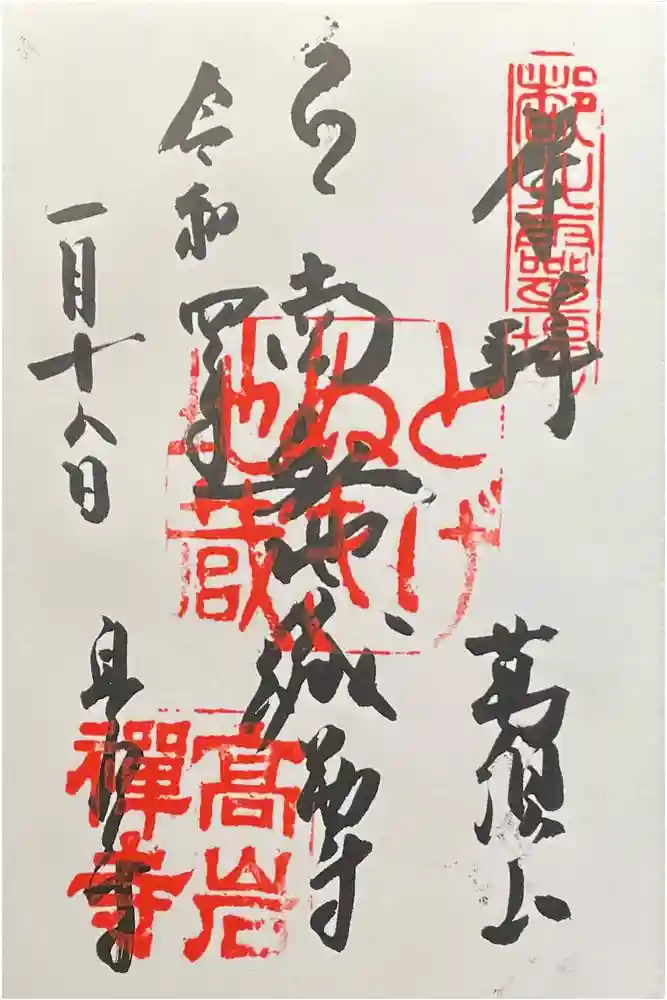 奉拝
萬頂山
南無地蔵尊
とげ
ぬき
地蔵
令和四年
一月十八日
高岩寺
髙岩
禪寺